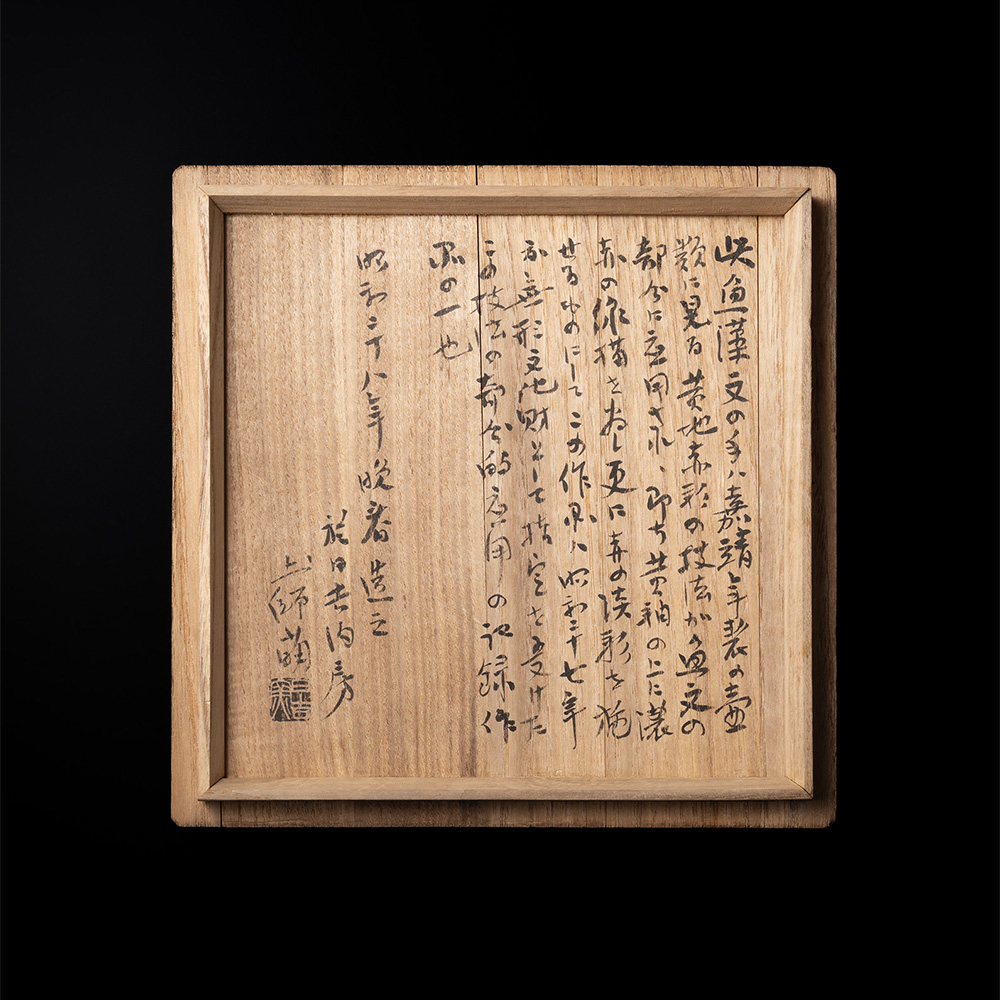 此魚藻文の手ハ嘉靖年製の壷
類に見る黄地赤彩の技法が魚文の
部分に応用され、即ち黄釉の上に濃
赤の線描をおし更に赤の淡彩を施
せるものにしてこの作品ハ昭和二十七年
お無形文化財として指定を受けた
この技法の部分的応用の記録作
品の一也
昭和二十八年晩春造之
於日吉内房
土師萌